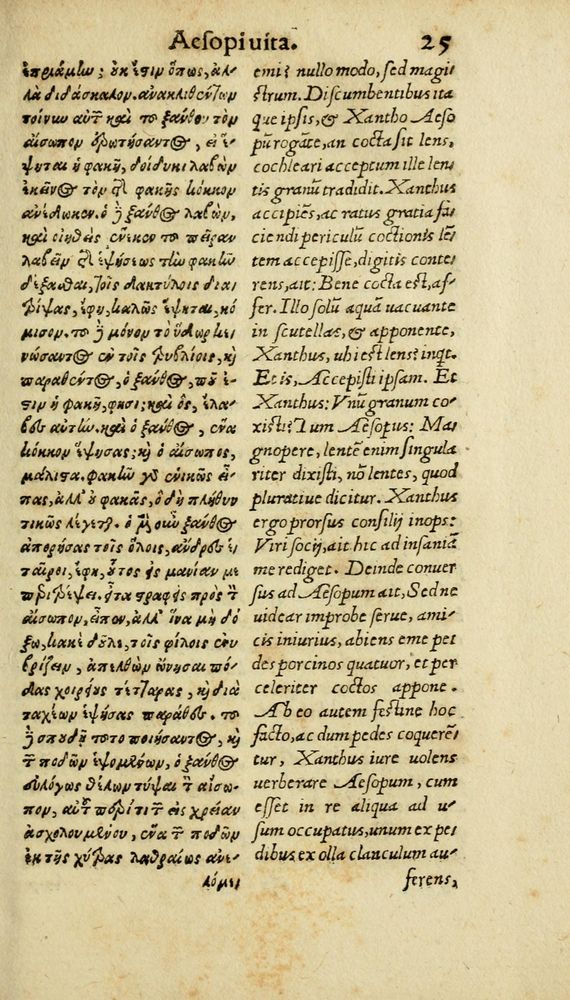 Aesopi vita. 25
ἐπριάμην; οὐκ ἔστιν ὅπως, ἀλ-
λὰ διδάσκαλον. ἀνακλιθέντων
τοίνυν αὐτῶν καὶ τοῦ ξάνθου τὸν
αἴσωπον ἐρωτήσαντος, εἰ ἕ-
ψηται ἡ φακῆ, δοίδυκι λαβὼν
ἐκεῖνος τὸν τῆς φακῆς κόκκον
ἀνέδωκεν. ὁ δὲ ξάνθος λαβὼν,
καὶ οἰηθεὶς ἕνεκεν τοῦ πεῖραν
λαβεῖν τῆς ἑψήσεως τὴν φακῆν
δέξασθαι, τοῖς δακτύλοις δια-
τρίψας, ἔφη, καλῶς ἕψηται, κό-
μισον. τοῦ δὲ μόνον τὸ ὕδωρ κε-
νώσαντος ἐν τοῖς τρυβλίοις, καὶ
παραθέντος, ὁ ξάνθος, ποῦ ἔ-
στιν ἡ φακῆ, φησι; καὶ ὃς, ἔλα-
βες αὐτήν. καὶ ὁ ξάνθος, ἕνα
κόκκον ἕψησας; καὶ ὁ αἴσωπος,
μάλιστα. φακῆν γὰρ ἑνικῶς εἶ-
πας, ἀλλ' οὐ φακᾶς, ὃ δὴ πληθυν
τικῶς λέγεται. ὁ μὲν οὖν ξάνθος
ἀπορήσας τοῖς ὅλοις, ἄνδρες ἑ-
ταῖροι, ἔφη, οὗτος εἰς μανίαν με
περιτρέψει. εἶτα στραφεὶς πρὸς τὸν
αἴσωπον, εἶπεν, ἀλλ' ἵνα μὴ δό-
ξω, κακὲ δοῦλε, τοῖς φίλοις ἐνυ-
βρίζειν, ἀπελθὼν ὤνησαι πό-
δας χοιρείους τέτταρας, καὶ διὰ
ταχέων ἑψήσας παράθες. τοῦ
δὲ σπουδῇ τοῦτο ποιήσαντος, καὶ
τῶν ποδῶν ἑψομένων, ὁ ξάνθος
εὐλόγως θέλων τύψαι τὸν αἴσω-
πον, αὐτοῦ περί τι τῶν εἰς χρείαν
ἀσχολουμένου, ἕνα τῶν ποδῶν
ἐκ τῆς χύτρας λαθραίως ἀνε-
λόμε-
emi? nullo modo, sed magi-
strum. Discumbentibus ita
que ipsis, & Xantho Aeso
pũ rogãte, an cocta sit lens,
cochleari acceptum ille len-
tis granũ tradidit. Xanthus
accipiẽs, ac ratus gratia fa-
ciendi periculũ coctionis lẽ-
tem accepisse, digitis conte-
rens, ait: Bene cocta est, af-
fer. Illo solũ aquã vacuante
in scutellas, & apponente,
Xanthus, ubi est lens? inqt.
Et is, Accepisti ipsam. Et
Xanthus: Vnũ granum co-
xisti? Tum Aesopus: Ma-
gnopere, lentẽ enim singula
riter dixisti, nõ lentes, quod
pluratiue dicitur. Xanthus
ergo prorsus consilij inops:
Viri socij, ait, hic ad insaniã
me rediget. Deinde conuer
sus ad Aesopum ait, Sed ne
uidear improbe serue, ami-
cis iniurius, abiens eme pe-
des porcinos quatuor, et per
celeriter coctos appone.
Ab eo autem festine hoc
facto, ac dum pedes coquerẽ
tur, Xanthus iure uolens
uerberare Aesopum, cum
esset in re aliqua ad u-
sum occupatus, unum ex pe-
dibus ex olla clanculum au-
ferens,